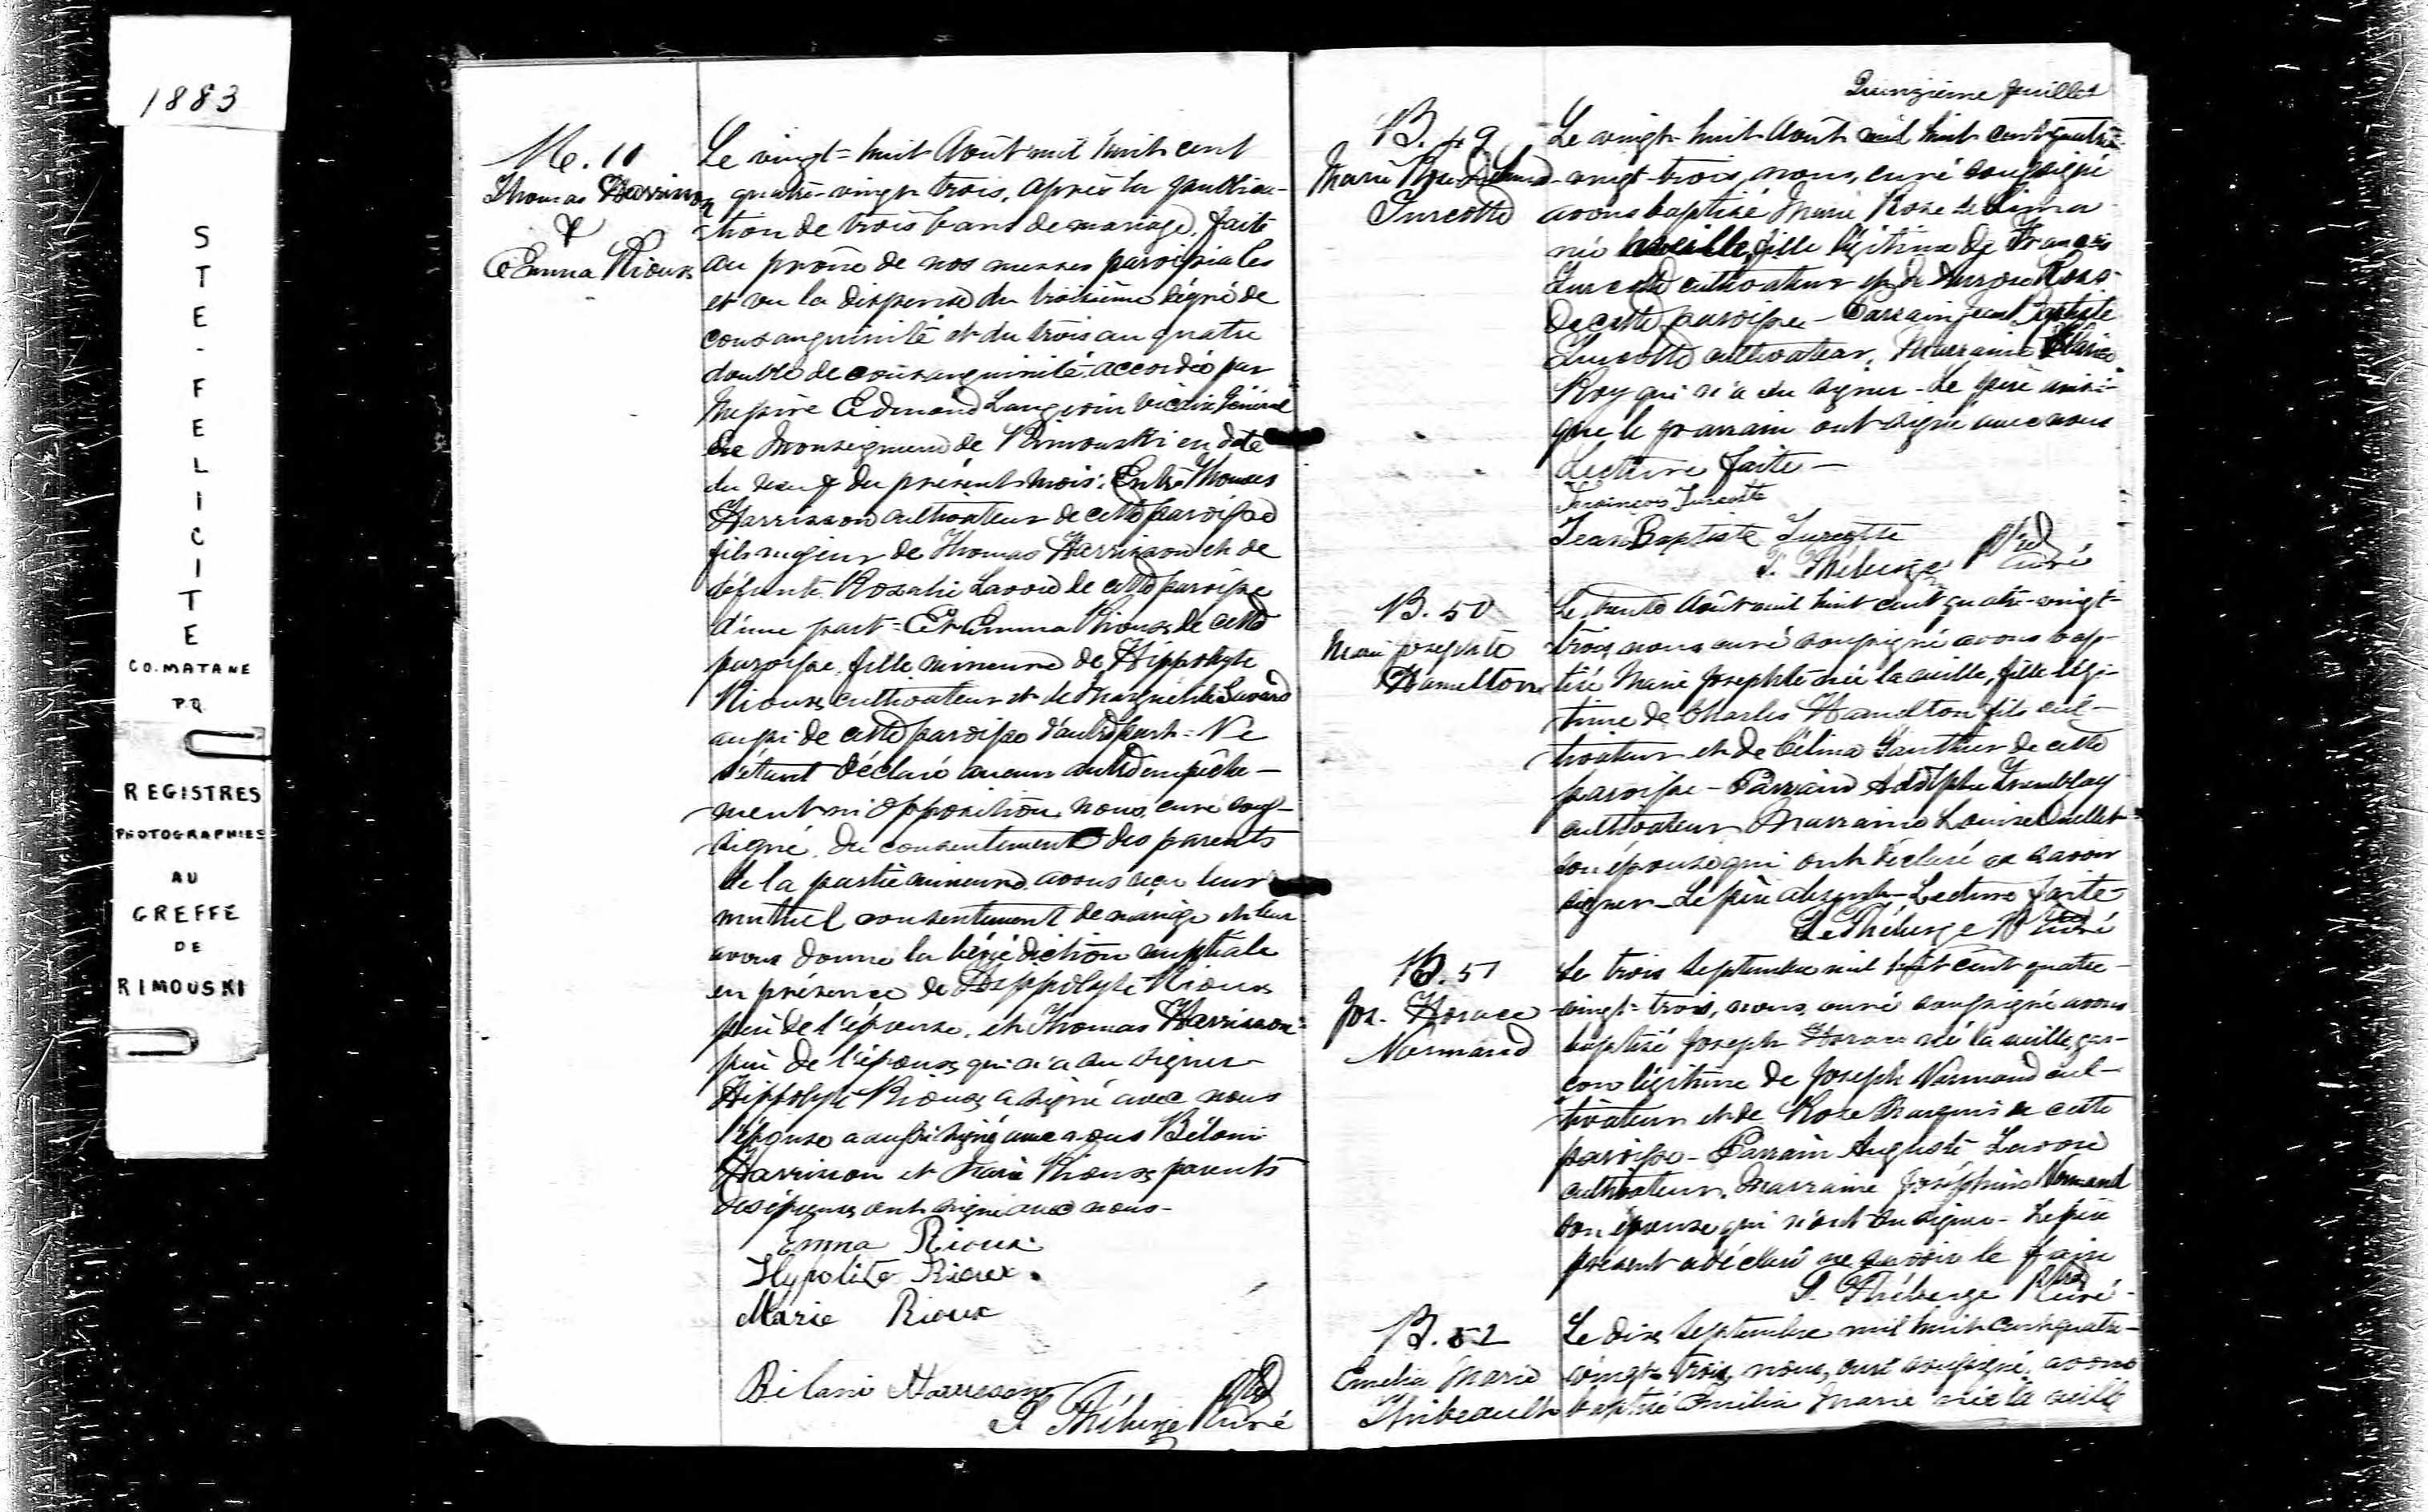 1883
STE-FELICITE
CO. MATANE
P.Q.
REGISTRES
PHOTOGRAPHIES
AU
GREFFE
DE
RIMOUSKI
M. 10
Thomas Harrisson
&
Emma Rioux
Le vingt-huit Août mil huit cent
quatre-vingt trois, après la publica-
tion de trois bans de mariage, faite
au prône de nos messes paroissiales
et vu la dispense du troisième dégré de
consanguinité et du trois au quatre
double de consanguinité accordée par
Messire Edmond Langevin Vicaire Général
de Monseigneur de Rimouski en date
du neuf du présent mois: Entre Thomas
Harrisson cultivateur de cette paroisse
fils majeur de Thomas Harrisson et de
défunte Rosalie Lavoie de cette paroisse
d'une part = Et Emma Rioux de cette
paroisse, fille mineure de Hippolyte
Rioux cultivateur et de Marguerite Savard
aussi de cette paroisse d'autre part = Ne
s'étant déclaré aucun autre empêche-
ment ni opposition, nous, curé sous-
signé, du consentement des parents
de la partie mineure avons reçu leur
mutuel consentement de mariage et leur
avons donné la bénédiction nuptiale
en présence de Hippolyte Rioux
père de l'épouse, et Thomas Harrisson
père de l'époux qui n'a su signer
Hippolyte Rioux a signé avec nous
l'épouse a aussi signé avec nous Béloni
Harrisson et Marie Rioux parents
des époux ont signé avec nous-
Emma Rioux
Hypolite Rioux.
Marie Rioux
Bélani Harrisson
Ptre
P. Théberge Curé
Quinzième feuillet
B. 49
Marie Rose de Lima
Turcotte
Le vingt-huit Août mil huit cent quatre-
vingt-trois, nous, curé soussigné
avons baptisé Marie Rose de Lima
née la veille, fille légitime de François
Turcotte cultivateur et de
de cette paroisse - Parrain Jean Baptiste
Turcotte cultivateur, Marraine
Roy qui n'a su signer - Le père ainsi
que le parrain ont signé avec nous
Lecture faite -
François Turcotte
Jean Baptiste Turcotte
P. Théberge Ptre
Curé
B. 50
Marie Josephte
Hamilton
Le trente Août mil huit cent quatre-vingt-
trois, nous curé soussigné avons bap-
tisé Marie Josephte née la veille, fille légi-
time de Charles Hamilton fils cul-
tivateur et de Célina Gauthier de cette
paroisse - Parrain Adolphe Tremblay
cultivateur Marraine Louise Ouellet
son épouse qui ont déclaré ne savoir
signer - Le père absent - Lecture faite -
P. Théberge Ptre Curé
B. 51
Jos. Horace
Normand
Le trois Septembre mil huit cent quatre-
vingt-trois, nous, curé soussigné avons
baptisé Joseph Horace né la veille gar-
çon légitime de Joseph Normand cul-
tivateur et de Rose Marquis de cette
paroisse - Parrain Auguste Lavoie
cultivateur. Marraine Joséphine Normand
son épouse qui n'ont su signer - Le père
présent a déclaré ne savoir le faire
P. Théberge Ptre
Curé
B. 52
Emelia Marie
Thibeault
Le dix Septembre mil huit cent quatre-
vingt-trois, nous, curé soussigné, avons
baptisé Emilia Marie née la veille